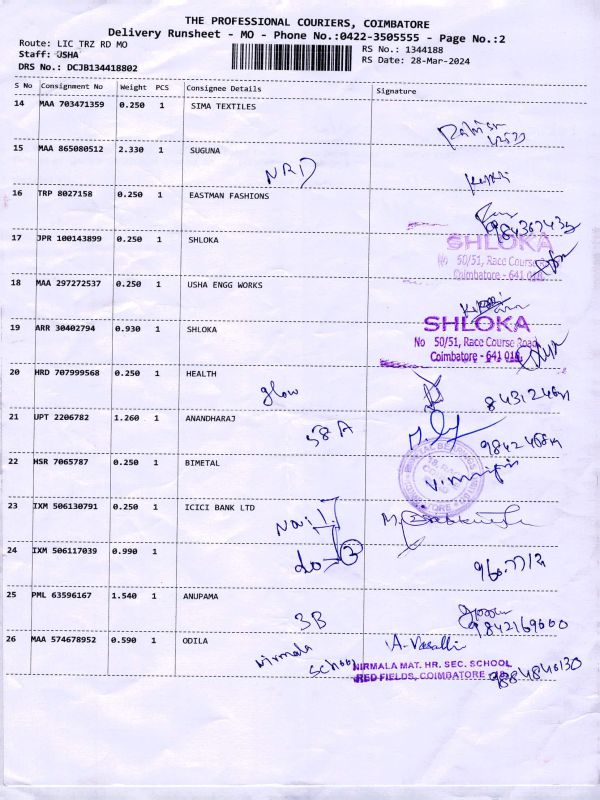 THE PROFESSIONAL COURIERS, COIMBATORE
Delivery Runsheet - MO - Phone No.:0422-3505555 - Page No.:2
Route: LIC TRZ RD MO
RS No.: 1344188
Staff: USHA
RS Date: 28-Mar-2024
DRS No.: DCJB134418802
S No Consignment No Weight PCS Consignee Details Signature
14 MAA 703471359 0.250 1 SIMA TEXTILES
15 MAA 865080512 2.330 1 SUGUNA
NRD
16 TRP 8027158 0.250 1 EASTMAN FASHIONS
17 JPR 100143899 0.250 1 SHLOKA
SHLOKA
No 50/51, Race Course
Coimbatore - 641 018
18 MAA 297272537 0.250 1 USHA ENGG WORKS
19 ARR 30402794 0.930 1 SHLOKA
SHLOKA
No 50/51, Race Course Road
Coimbatore - 641 018
20 HRD 707999568 0.250 1 HEALTH
glow
21 UPT 2206782 1.260 1 ANANDHARAJ
58 A
22 HSR 7065787 0.250 1 BIMETAL
23 IXM 506130791 0.250 1 ICICI BANK LTD
24 IXM 506117039 0.990 1
25 PML 63596167 1.540 1 ANUPAMA
3B
9842169600
26 MAA 574678952 0.590 1 ODILA
Nirmala School
NIRMALA MAT. HR. SEC. SCHOOL
RED FIELDS, COIMBATORE
9884840130